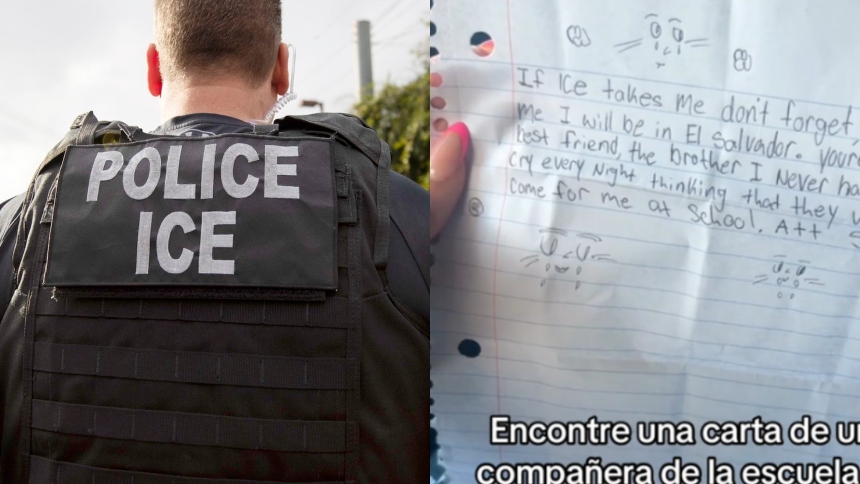 POLICE
ICE
If ICE takes me don't forget
me I will be in El Salvador. your
best friend, the brother I Never
cry every Night thinking that they
come for me at school. Att
Encontre una carta de
compañera de la escuela